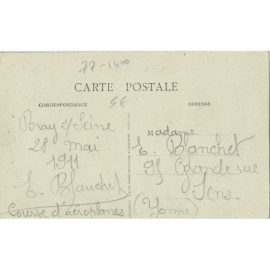 77-1400
CARTE POSTALE
CORRESPONDANCE
5€
ADRESSE
Bray s/Seine
28 mai
1911
E. Blanchet
Course d'aéroplanes
Madame
E. Blanchet
95 Grande rue
Sens
(Yonne)